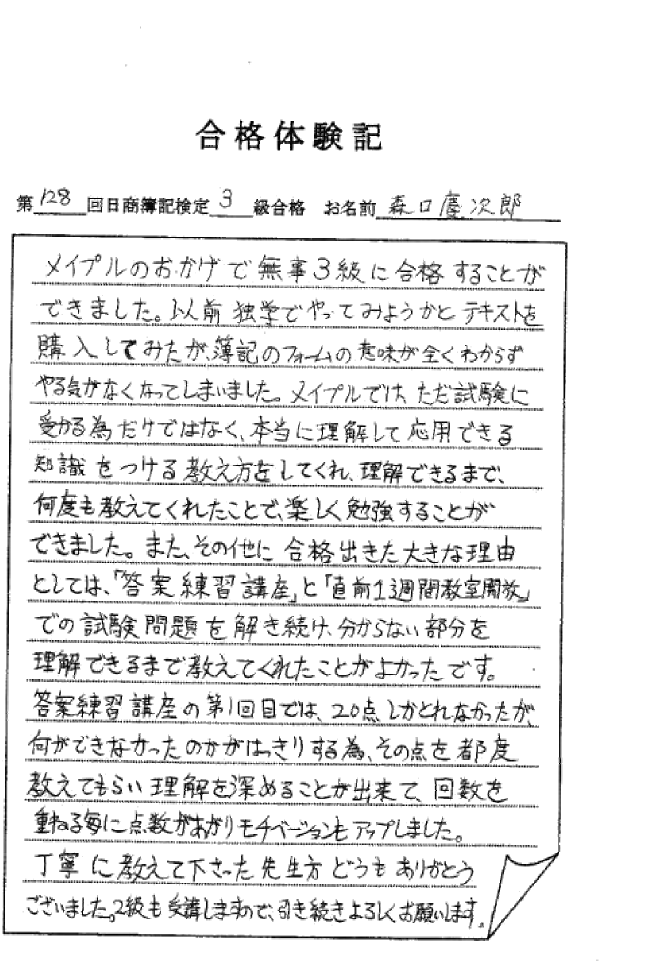 合格体験記
第128回日商簿記検定3級合格 お名前 森口慶次郎
メイプルのおかげで無事3級に合格することが
できました。以前独学でやってみようかとテキストを
購入してみたが、簿記のフォームの意味が全くわからず
やる気がなくなってしまいました。メイプルでは、ただ試験に
受かる為だけではなく、本当に理解して応用できる
知識をつける教え方をしてくれ、理解できるまで、
何度も教えてくれたことで、楽しく勉強することが
できました。また、その他に合格出きた大きな理由
としては、「答案練習講座」と「直前1週間教室開放」
での試験問題を解き続け、分からない部分を
理解できるまで教えてくれたことがよかったです。
答案練習講座の第1回目では、20点しかとれなかったが、
何ができなかったのかがはっきりする為、その点を都度
教えてもらい理解を深めることが出来て、回数を
重ねる毎に点数があがりモチベーションもアップしました。
丁寧に教えて下さった先生方どうもありがとう
ございました。2級も受講しますので、引き続きよろしくお願いします。